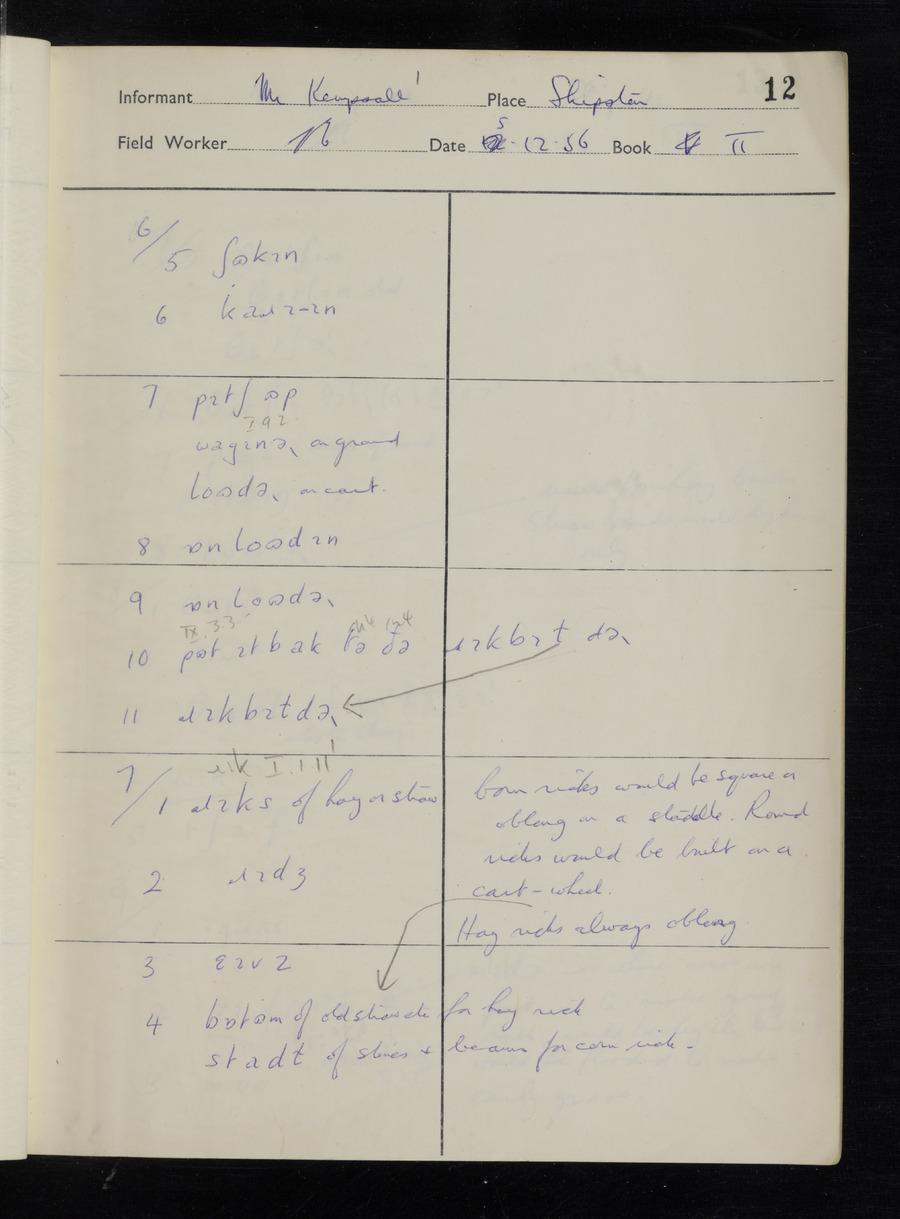 12
Informant Mr Place
Field Worker Date 5 . 12 . 56 Book II
6/
5 ʃɷkɪn
6
7 pɪtʃ ɷp
I 9 2
wagɪnə, on ground
loɷdə, on cart.
8 ɒnloɷdɪn
9 ɒnloɷdə,
IX.3.3
10 pɷt ɪt bak tə ðə ɹɪkbɪt də,
11 ɹɪkbɪtdə,
ɹɪk I.1.11
7/
1 ɹɪks of hay or straw
Corn ricks would be square or
oblong on a staddle. Round
ricks would be built on a
2 ɹɪdʒ
cart-wheel.
Hay ricks always oblong.
3 ɛɪvz
4 bɒtəm of old straw etc for hay rick
stadɫ of stones + beams for corn rick.